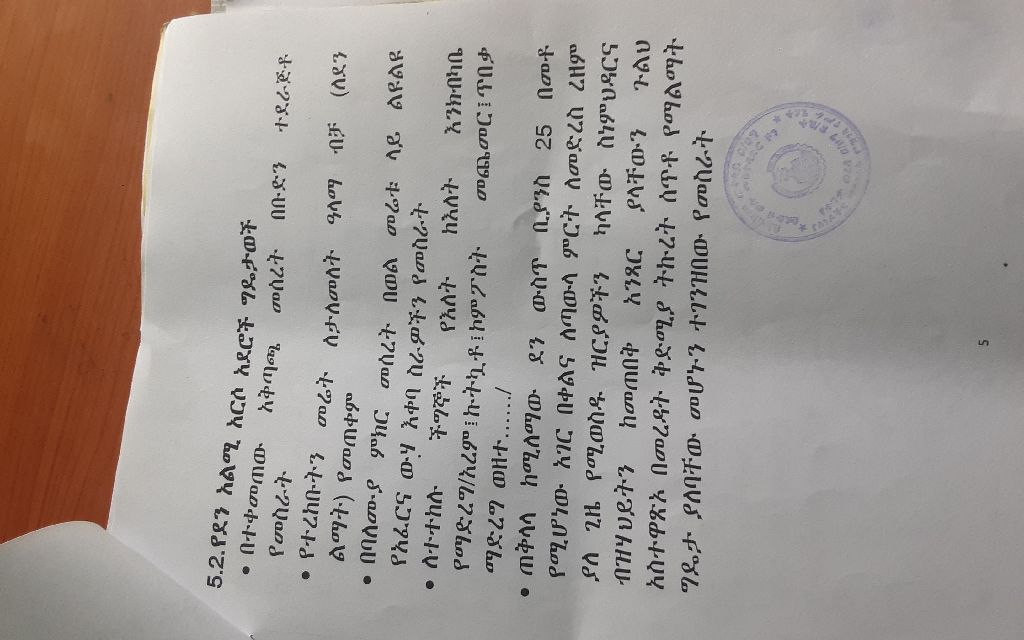 5.2.የደን አልሚ አርሶ አደሮች ግዴታወች
• በተቀመጠው አቅጣጫ መሰረት በቡድን ተደራጅቶ
የመስራት
• የተረከቡትን መሬት ለታለመለት ዓለማ ብቻ (ለደን
ልማት) የመጠቀም
• በባለሙያ ምክር መሰረት በወል መሬቱ ላይ ልዩልዩ
የአፈርና ውሃ እቀባ ስራዎችን የመስራት
• ለተተከሉ ችግኞች የእለት ከእለት እንክብካቤ
የማድረግ/አረም፤ኩትኳዶ፤ኮምፖስት መጨመር፤ጥበቃ
ማድረግ ወዘተ....../
• ጠቅላላ ከሚለማው ደን ውስጥ ቢያንስ 25 በመቶ
የሚሆነው አገር በቀልና ለጣውላ ምርት ለመድረስ ረዘም
ያለ ጊዜ የሚወስዱ ዝርያዎችን ካላቸው ስነምህዳርና
ብዝሃህይትን ከመጠበቅ አንጻር ያላቸውን ጉልህ
አስተዋጽኦ በመረዳት ቅድሚያ ትኩረት ሰጥቶ የማልማት
ግዴታ ያለባቸው መሆኑን ተገንዝበው የመስራት
5